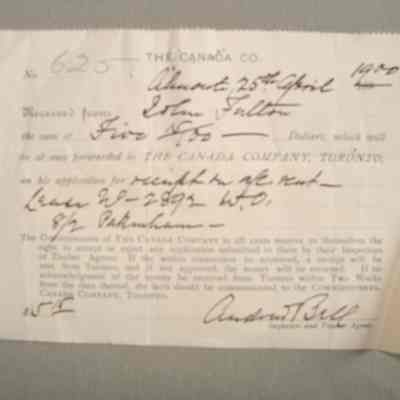 THE CANADA CO.
No 625
Almonte, 25th April 1900
RECEIVED FROM John Fulton
the sum of Five 00/100 Dollars, which will
be at once forwarded to THE CANADA COMPANY, TORONTO,
on his application for receipt on a/c rent
Lease W-2892 W.O.
8/2 Pakenham
The Commissioners of THE CANADA COMPANY in all cases reserve to themselves the
right to accept or reject any application submitted to them by their Inspectors
or Timber Agents. If the within transaction be accepted, a receipt will be
sent from Toronto and if not approved, the money will be returned. If no
acknowledgment of the money be received from Toronto within Two Weeks
from the date thereof, the facts should be communicated to the COMMISSIONERS,
CANADA COMPANY, TORONTO.
Andrew Bell
Inspector and Timber Agent